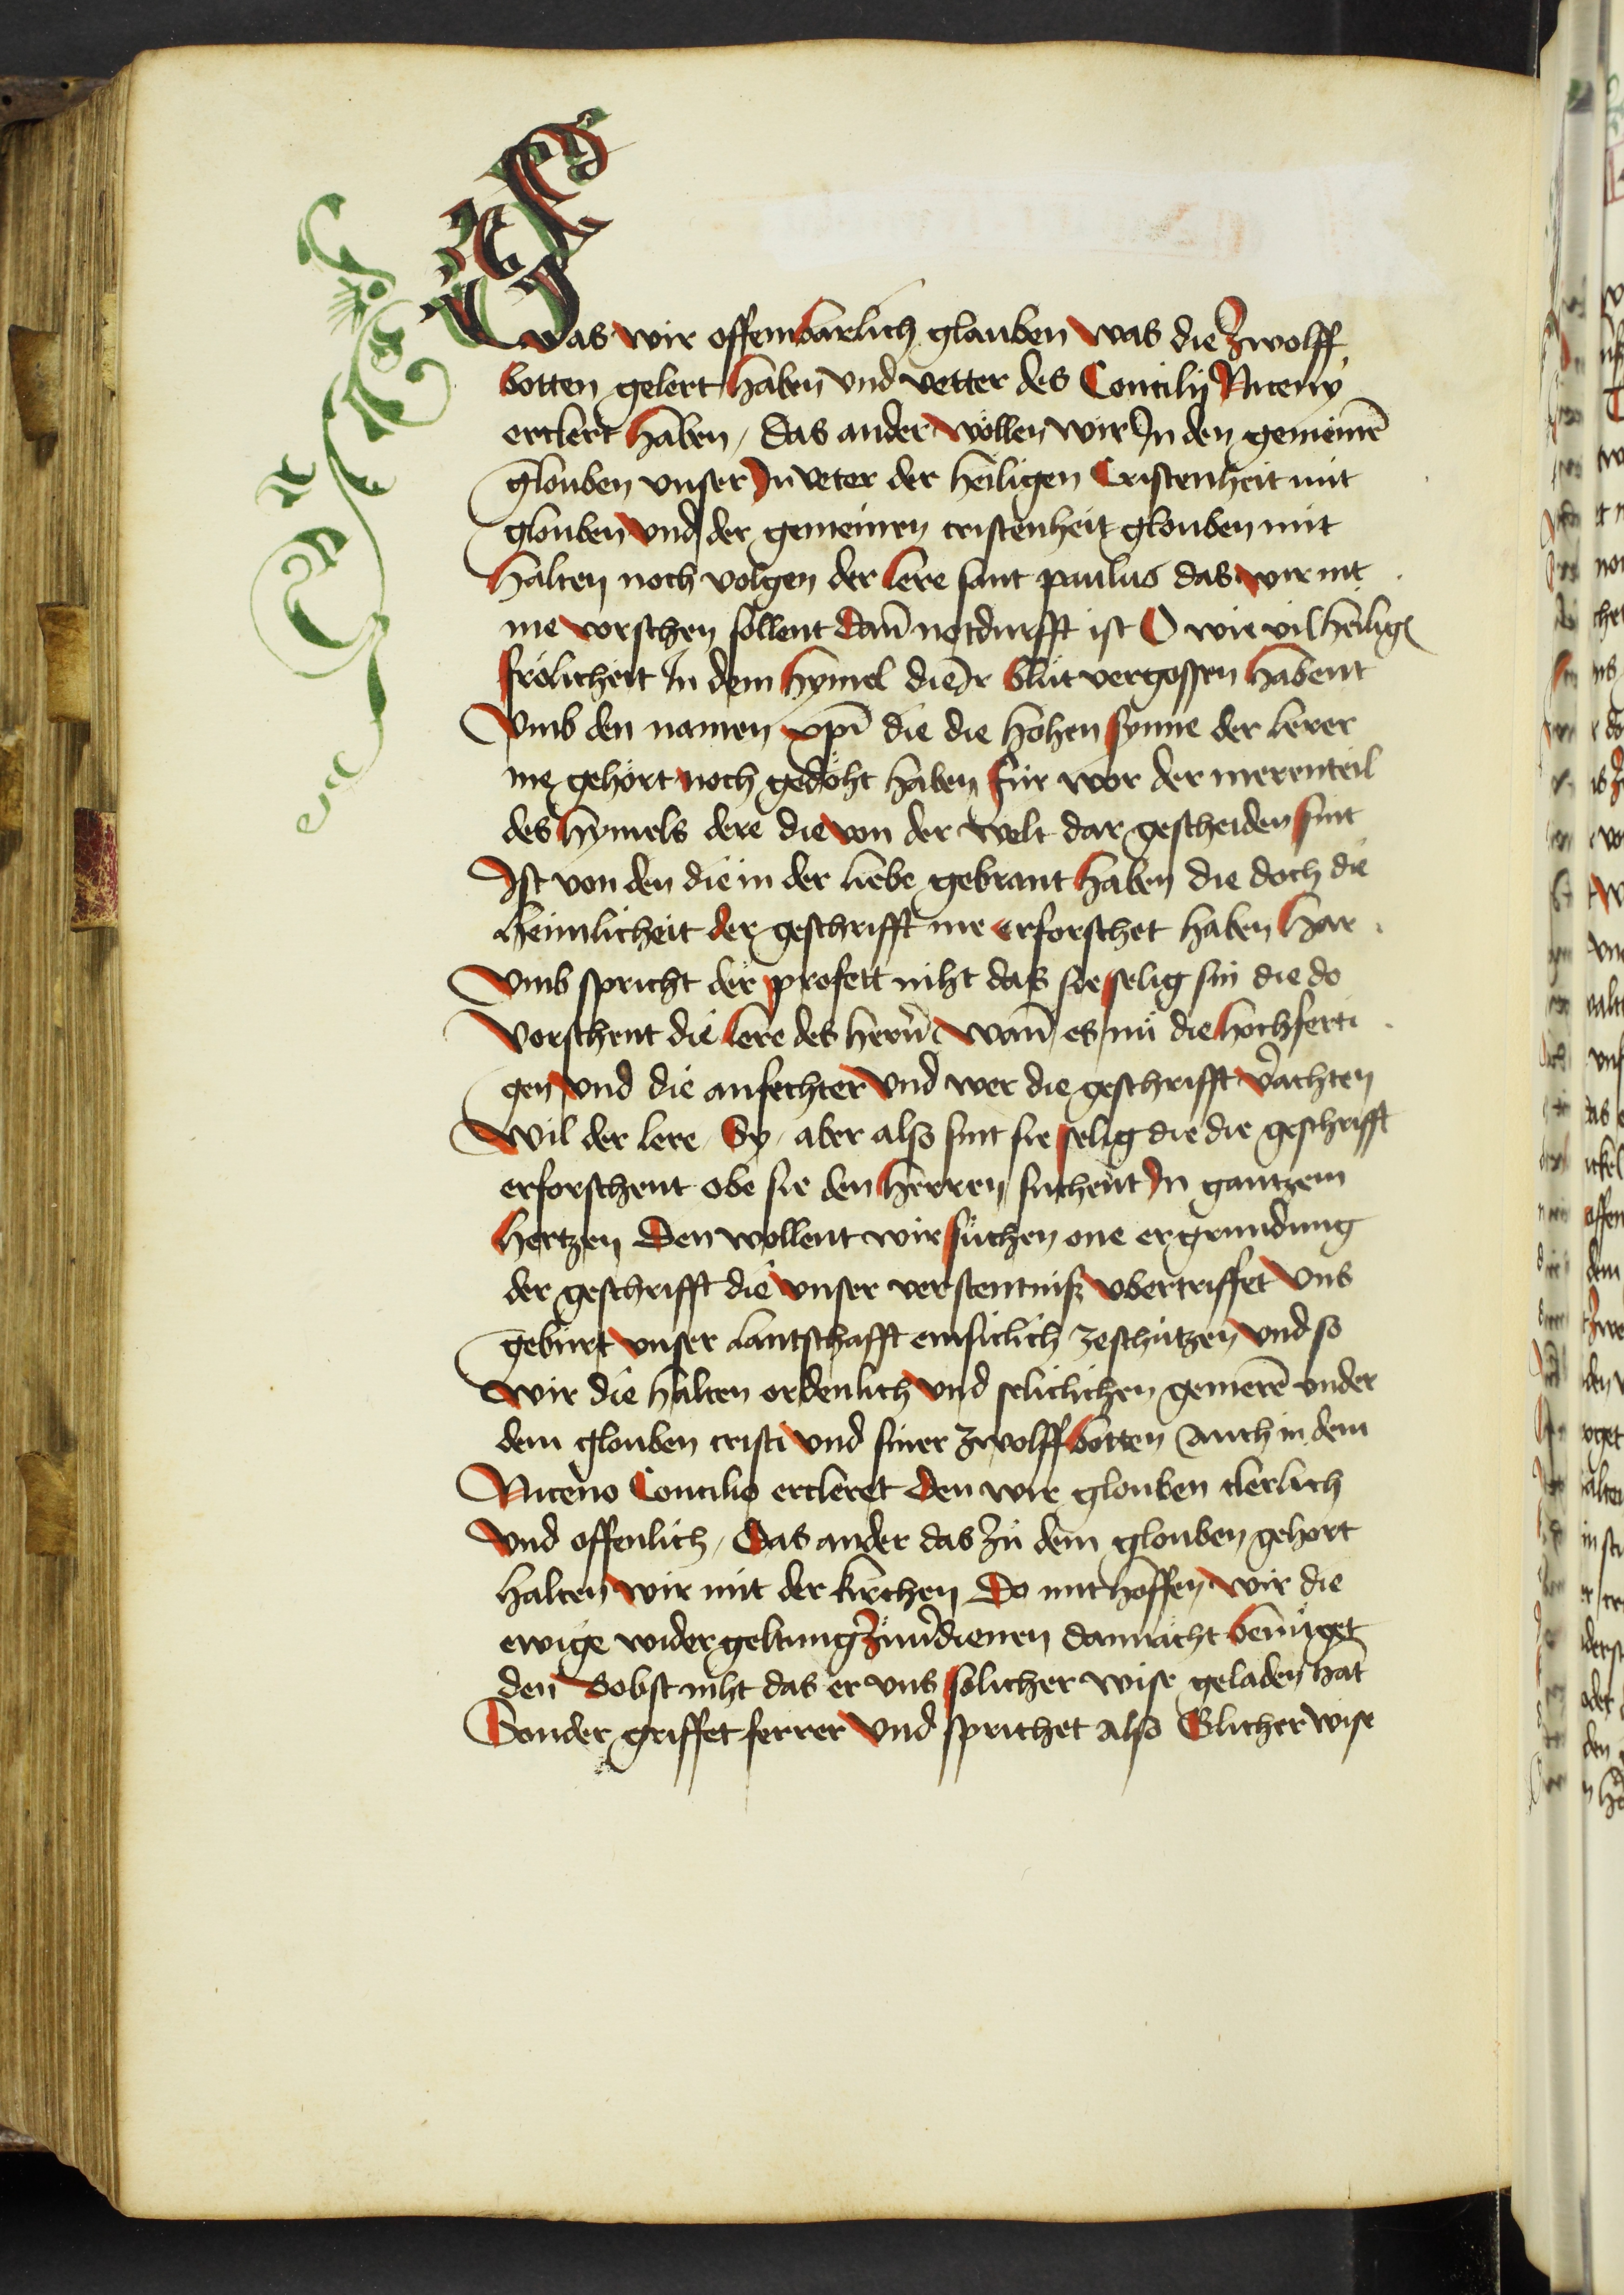 was wir offembarlich glauben was die Zwolff
botten gelert haben vnd vetter des Concilij Niceny
erclert haben / das ander wöllen wir In den gemeinē
glouben vnser In veter der heiligen Cristenheit mit
glouben vnd der gemeinen cristenheit glouben mit
halten noch volgen der lere sant paulus das wir nit
me vorschen söllent dan̄ notdurfft ist O wie vil heilig
frölicheit In dem hymel die Ir blůt vergossen habent
Vmb den namen xp̄i die die hohen synne der lerer
nie gehört noch gedöht haben für wor der merenteil
des hymels dere die von der welt dar gescheiden sint
Ist von den die in der liebe gebrant haben die doch die
heimlicheit der geschrifft nie erforschet haben har
vmb spricht der profett niht das sie selig sin die do
vorschent die lere des herrn̄ wan̄ es nü die hochferti
gen vnd die anfechter vnd wer die geschrifft v̄achten
wil der lere / Sy / aber also sint sie selig die die geschrifft
erforschent obe sie den herren sůchent In gantzem
hertzen Den wollent wir sůchen one ergrundung
der geschrifft die vnser verstentniß vbertriffet vns
gebürt vnser lantschafft einsiclich zeschützen vnd so
wir die halten ordenlich vnd seliclichen gemerē vnder
dem glouben cristi vnd siner zwolff botten Auch in dem
Niceno Concilio ercleret den wir glouben clerlich
vnd offenlich / Das ander das zů dem glouben gehört
halten wir mit der kirchen Do mit hoffen wir die
ewige widergeltung Zůuerdienen dannacht benüget
den Bobst niht das er vns solicher wise geladen hat
Sonder griffet ferrer vnd sprichet also Glicher wise